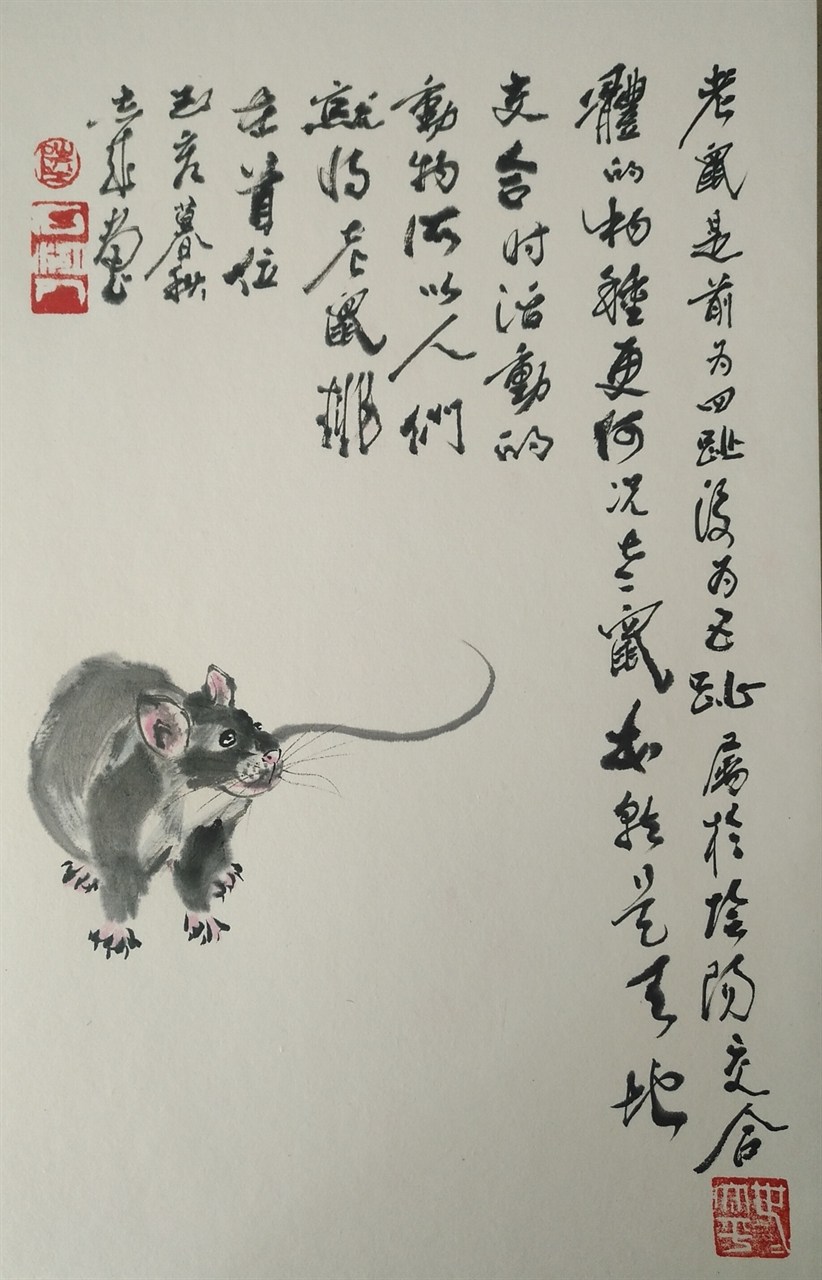 老鼠是前为四趾後为五趾屬於陰陽交合
體的物種更何况老鼠本就是天地
交合时活動的
動物所以人們
就将老鼠排
在首位
暮秋
画